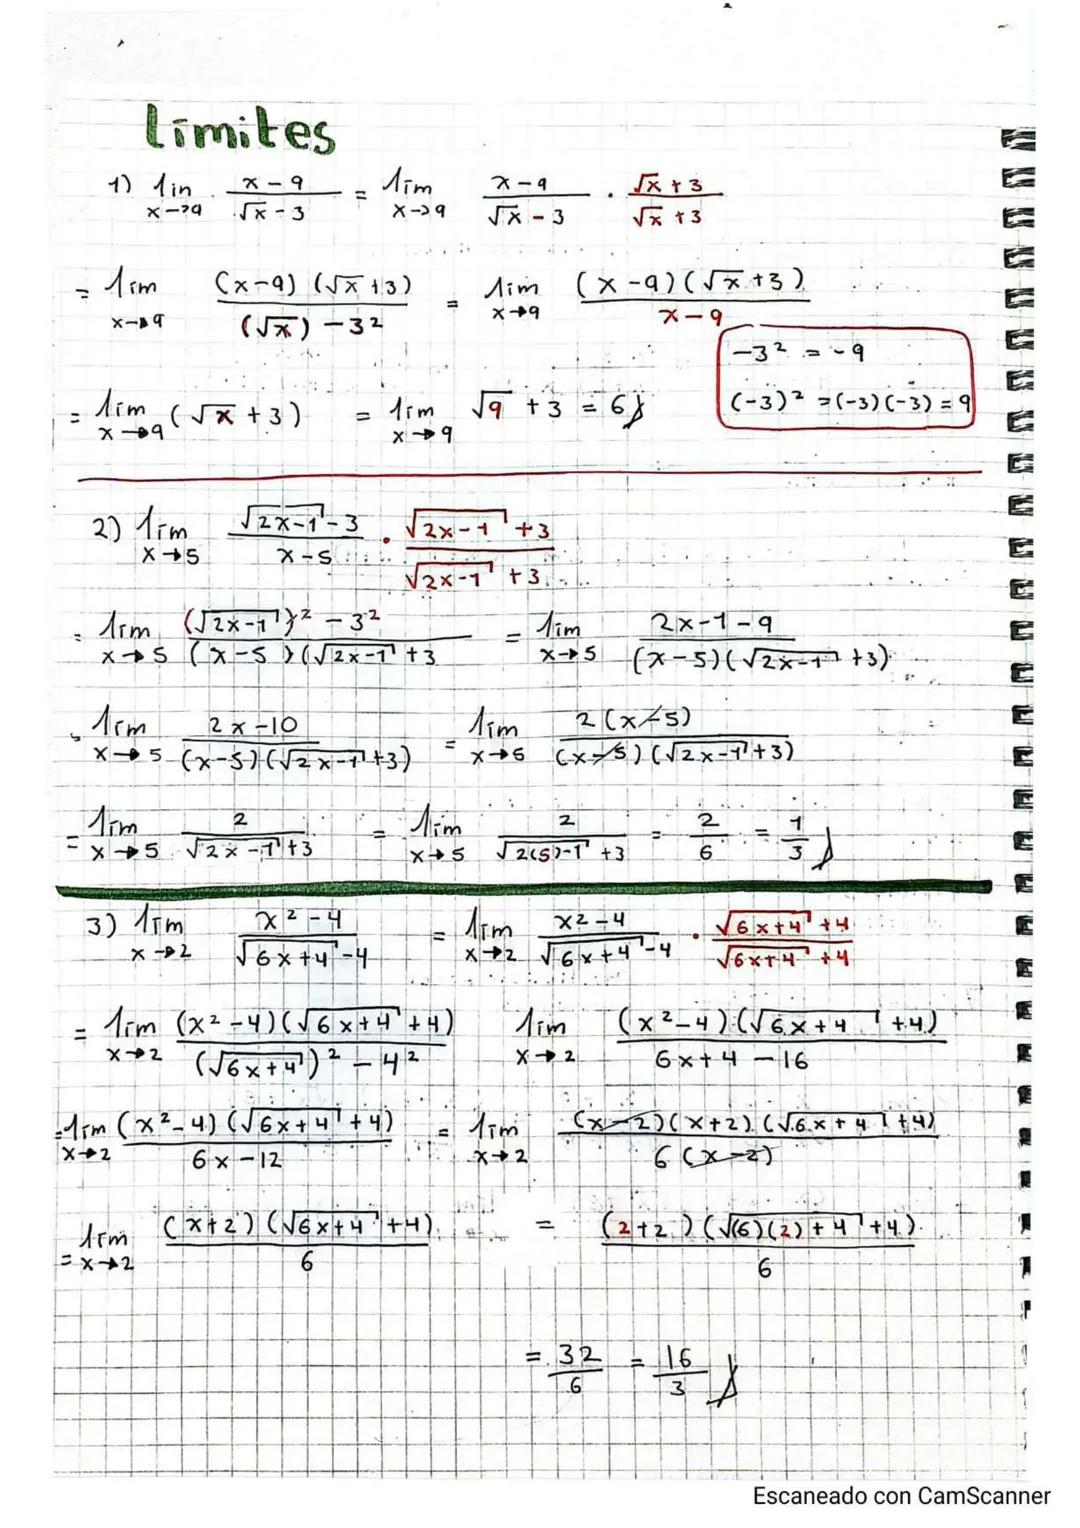 Límites
1) lin x→9 x-9/√x-3 = lím x→9 x-9/√x-3 · √x+3/√x+3
= lím x→9 (x-9)(√x+3)/(√x)-3² = lím x→9 (x-9)(√x+3)/x-9
-3² = -9
(-3)² = (-3)(-3) = 9
= lím x→9 (√x+3) = lím x→9 √9+3 = 6
2) lím x→5 √2x-1-3/x-5 · √2x-1+3/√2x-1+3
= lím x→5 (√2x-1)²-3²/(x-5)(√2x-1+3 = lím x→5 2x-1-9/(x-5)(√2x-1+3)
= lím x→5 2x-10/(x-5)(√2x-1+3) = lím x→5 2(x-5)/(x-5)(√2x-1+3)
= lím x→5 2/√2x-1+3 = lím x→5 2/√2(5)-1+3 = 2/6 = 1/3
3) lím x→2 x²-4/√6x+4-4 = lím x→2 x²-4/√6x+4-4 · √6x+4+4/√6x+4+4
= lím x→2 (x²-4)(√6x+4+4)/(√6x+4)²-4² lím x→2 (x²-4)(√6x+4+4)/6x+4-16
= lím x→2 (x²-4)(√6x+4+4)/6x-12 = lím x→2 (x-2)(x+2)(√6x+4+4)/6(x-2)
= lím x→2 (x+2)(√6x+4+4)/6 = (2+2)(√(6)(2)+4+4)/6
= 32/6 = 16/3
Escaneado con CamScanner